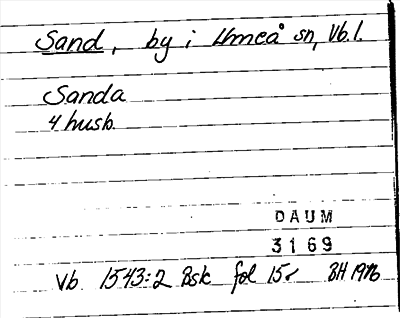 Sand, by i Umeå sn, Vb.l.
Sanda
4 husb.
DAUM
3169
Vb 1543:2 Bsk fol 15r BH 1976